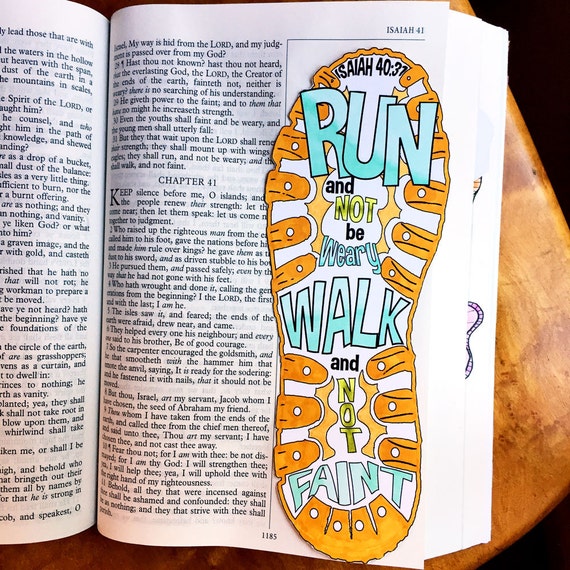 ly lead those that are with
the waters in the hollow
out heaven with the span,
dust of the earth in a
the mountains in scales,
e Spirit of the LORD, or
aught him?
he counsel, and who
ght him in the path of
knowledge, and shewed
tanding?
re as a drop of a bucket,
small dust of the balance:
sles as a very little thing.
t sufficient to burn, nor the
r a burnt offering.
are as nothing; and they
n nothing, and vanity.
ye liken God? or what
to him?
a graven image, and the
r with gold, and casteth
rished that he hath no
that will not rot; he
workman to prepare a
t be moved.
ave ye not heard? hath
the beginning? have ye
foundations of the
n the circle of the earth,
of are as grasshoppers;
eavens as a curtain, and
t to dwell in:
rinces to nothing; he
arth as vanity.
planted; yea, they shall
k shall not take root in
blow upon them, and
whirlwind take
iken me, or shall I be
high, and behold who
that bringeth out their
them all by names by
r that he is strong in
cob, and speakest, O
ISAIAH 41
Israel, My way is hid from the LORD, and my judg-
ment is passed over from my God?
28 ¶ Hast thou not known? hast thou not heard,
that the everlasting God, the LORD, the Creator of
the ends of the earth, fainteth not, neither is
weary? there is no searching of his understanding.
29 He giveth power to the faint; and to them that
have no might he increaseth strength.
30 Even the youths shall faint and be weary, and
the young men shall utterly fall:
31 But they that wait upon the LORD shall renew
their strength; they shall mount up with wings
eagles; they shall run, and not be weary; and
shall walk, and not faint.
CHAPTER 41
KEEP silence before me, O islands; and
the people renew their strength: let
come near; then let them speak: let us come
together to judgment.
2 Who raised up the righteous man from the
called him to his foot, gave the nations before
and made him rule over kings? he gave them as
dust to his sword, and as driven stubble to his bow.
3 He pursued them, and passed safely; even by
way that he had not gone with his feet.
4 Who hath wrought and done it, calling the
erations from the beginning? I the LORD, the first
and with the last; I am he.
5 The isles saw it, and feared; the ends of the
earth were afraid, drew near, and came.
6 They helped every one his neighbour; and every
one said to his brother, Be of good courage.
7 So the carpenter encouraged the goldsmith, and
he that smootheth with the hammer him that
smote the anvil, saying, It is ready for the sodering:
and he fastened it with nails, that it should not be
moved.
8 But thou, Israel, art my servant, Jacob whom I
have chosen, the seed of Abraham my friend.
9 Thou whom I have taken from the ends of the
earth, and called thee from the chief men thereof,
and said unto thee, Thou art my servant; I have
chosen thee, and not cast thee away.
10 ¶ Fear thou not; for I am with thee: be not dis-
mayed; for I am thy God: I will strengthen thee;
yea, I will help thee; yea, I will uphold thee with
the right hand of my righteousness.
11 Behold, all they that were incensed against
thee shall be ashamed and confounded: they shall
be as nothing; and they that strive with thee shall
1185
ISAIAH 40:31
RUN
and
NOT
be
Weary
WALK
and
NOT
FAINT